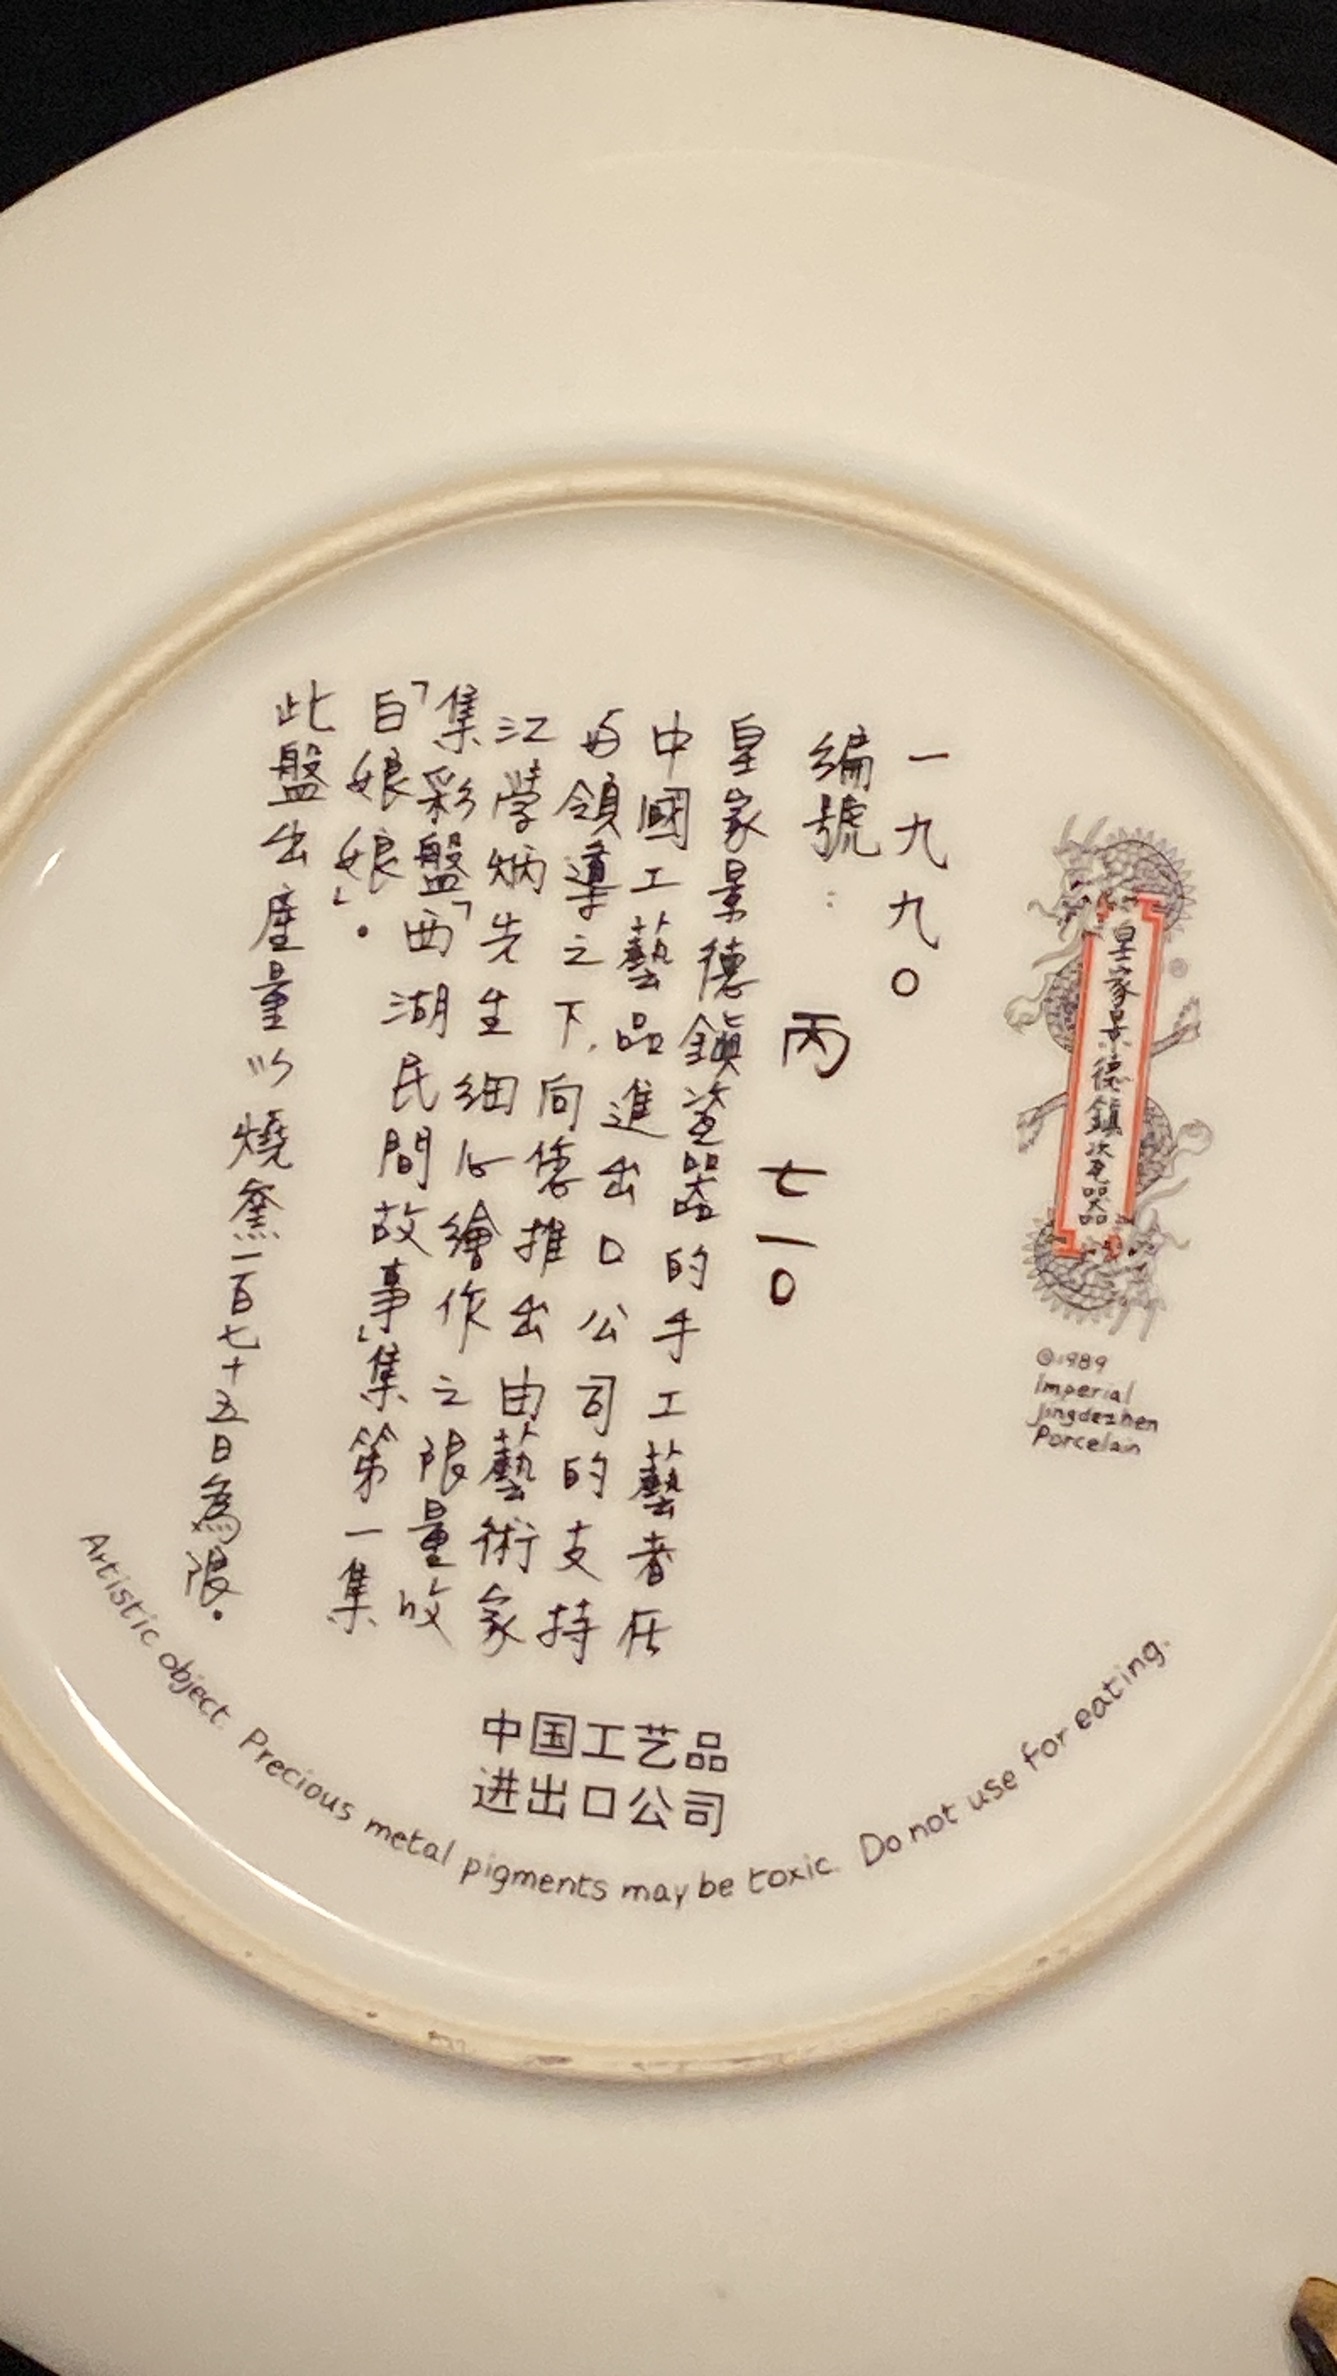 皇家景德鎮瓷器
®
©1989
Imperial
Jingdezhen
Porcelain
一九九〇
編號：丙 七一〇
皇家景德鎮瓷器的手工藝者在
中國工藝品進出口公司的支持
与領導之下,向您推出由藝術家
江學炳先生細心繪作之限量收
集彩盤「西湖民間故事」集第一集
「白娘娘」.
此盤出產量以燒窯一百七十五日為限.
中国工艺品
进出口公司
Artistic object. Precious metal pigments may be toxic. Do not use for eating.